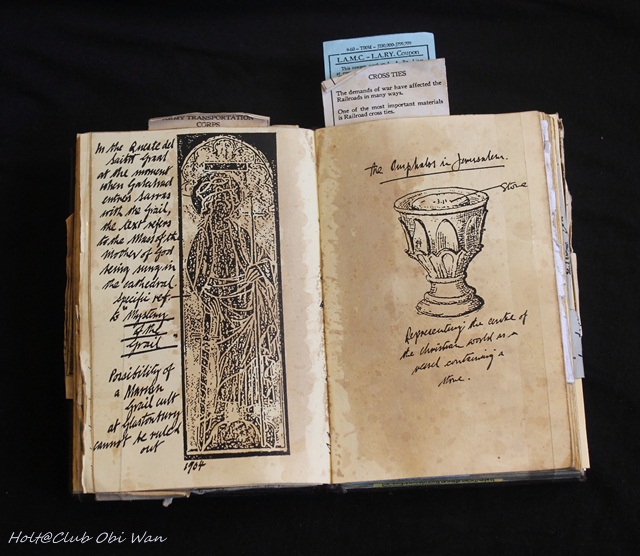 L.A.M.C. - LA.RY. Coupon
CROSS TIES
The demands of war have affected the
Railroads in many ways.
One of the most important materials
is Railroad cross ties.
ARMY TRANSPORTATION
CORPS.
In the Queste del
Saint Graal
at the moment
when Galahad
enters Sarras
with the Grail,
the text refers
to the Mass of the
Mother of God
being sung in
the cathedral
Specific ref-
to Mystery
of the
Grail
Possibility of
a Marian
Grail cult
at Glastonbury
cannot be ruled
out
1904
the Omphalos in Jerusalem.
Stone
Representing the centre of
the Christian world is a
vessel containing a
stone.
Holt@Club Obi Wan